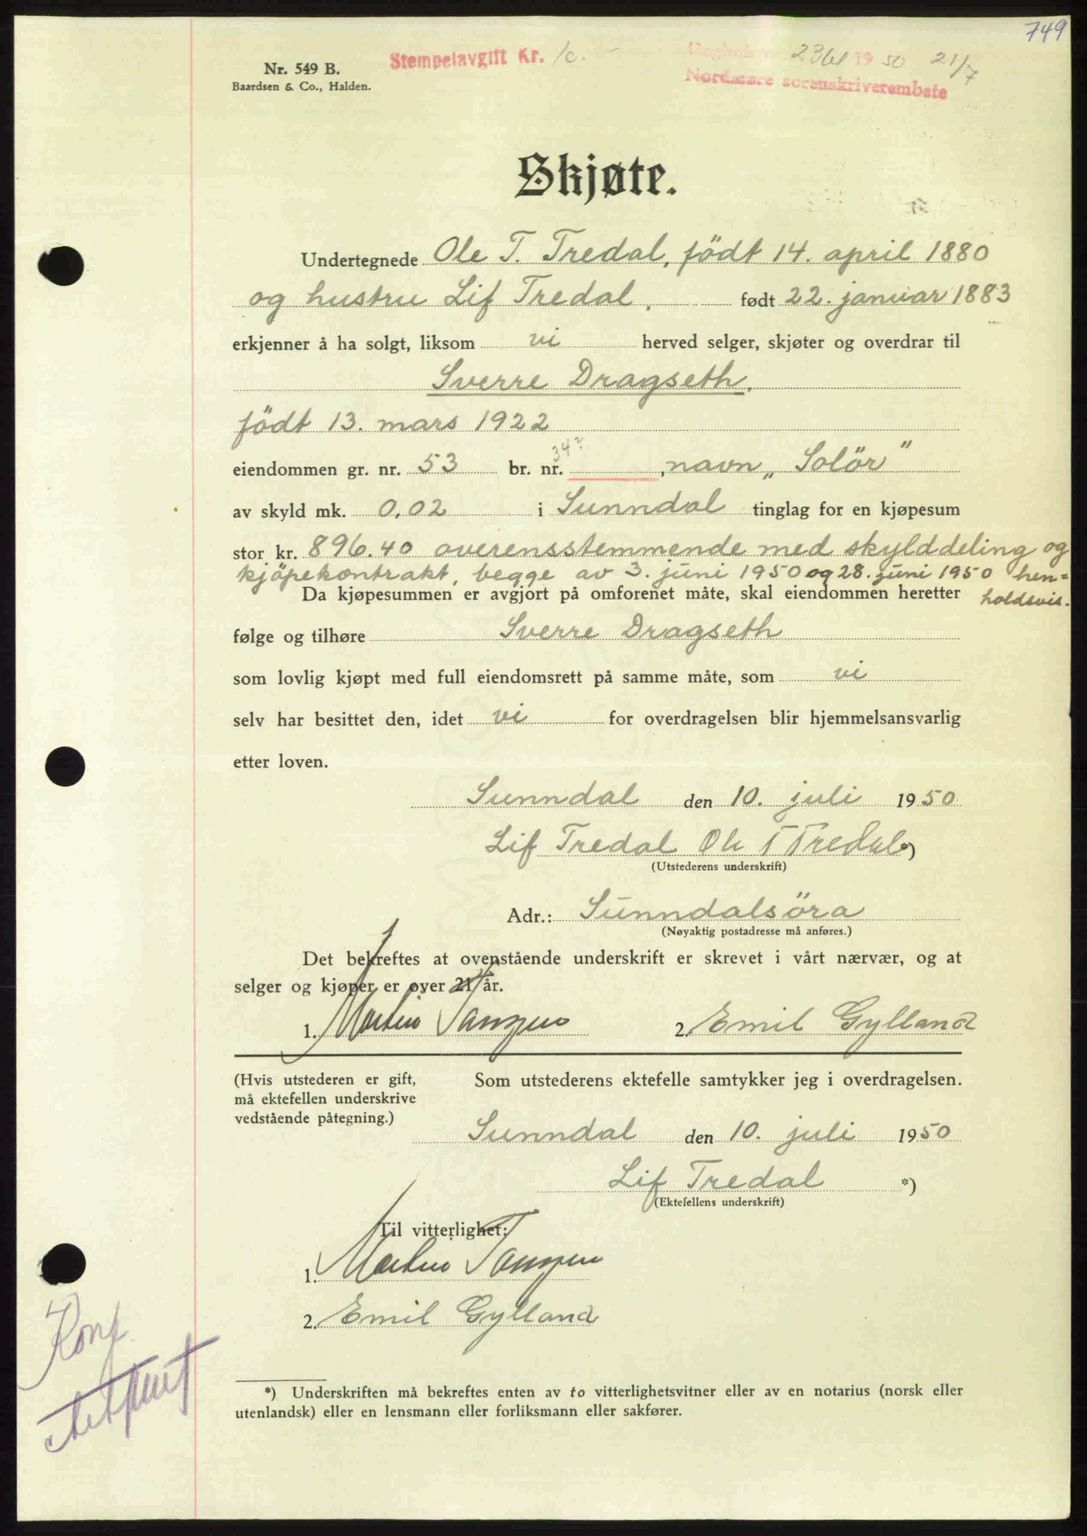 749
Stempelavgift Kr. 10.-
Dagbok nr. 2361 1950 21/7
Nordmøre sorenskriverembete
Nr. 549 B.
Baardsen & Co., Halden.
Skjøte.
Undertegnede Ole T. Tredal, født 14. april 1880
og hustru Lif Tredal, født 22. januar 1883
erkjenner å ha solgt, liksom vi herved selger, skjøter og overdrar til
Sverre Dragseth,
født 13. mars 1922
eiendommen gr. nr. 53 br. nr. 347, navn „Solör”
av skyld mk. 0,02 i Sunndal tinglag for en kjøpesum
stor kr. 896.40 overensstemmende med skylddeling og
kjöpekontrakt, begge av 3. juni 1950 og 28. juni 1950 hen=
holdsvis.
Da kjøpesummen er avgjort på omforenet måte, skal eiendommen heretter
følge og tilhøre Sverre Dragseth
som lovlig kjøpt med full eiendomsrett på samme måte, som vi
selv har besittet den, idet vi for overdragelsen blir hjemmelsansvarlig
etter loven.
Sunndal den 10. juli 1950
Lif Tredal Ole T Tredal *)
(Utstederens underskrift)
Adr.: Sunndalsöra
(Nøyaktig postadresse må anføres.)
Det bekreftes at ovenstående underskrift er skrevet i vårt nærvær, og at
selger og kjøper er over 21 år.
1. Martin 2. Emil Gylland
(Hvis utstederen er gift,
må ektefellen underskrive
vedstående påtegning.)
Som utstederens ektefelle samtykker jeg i overdragelsen.
Sunndal den 10. juli 1950
Lif Tredal *)
(Ektefellens underskrift)
Til vitterlighet:
1. Martin
2. Emil Gylland
*) Underskriften må bekreftes enten av to vitterlighetsvitner eller av en notarius (norsk eller
utenlandsk) eller en lensmann eller forliksmann eller sakfører.